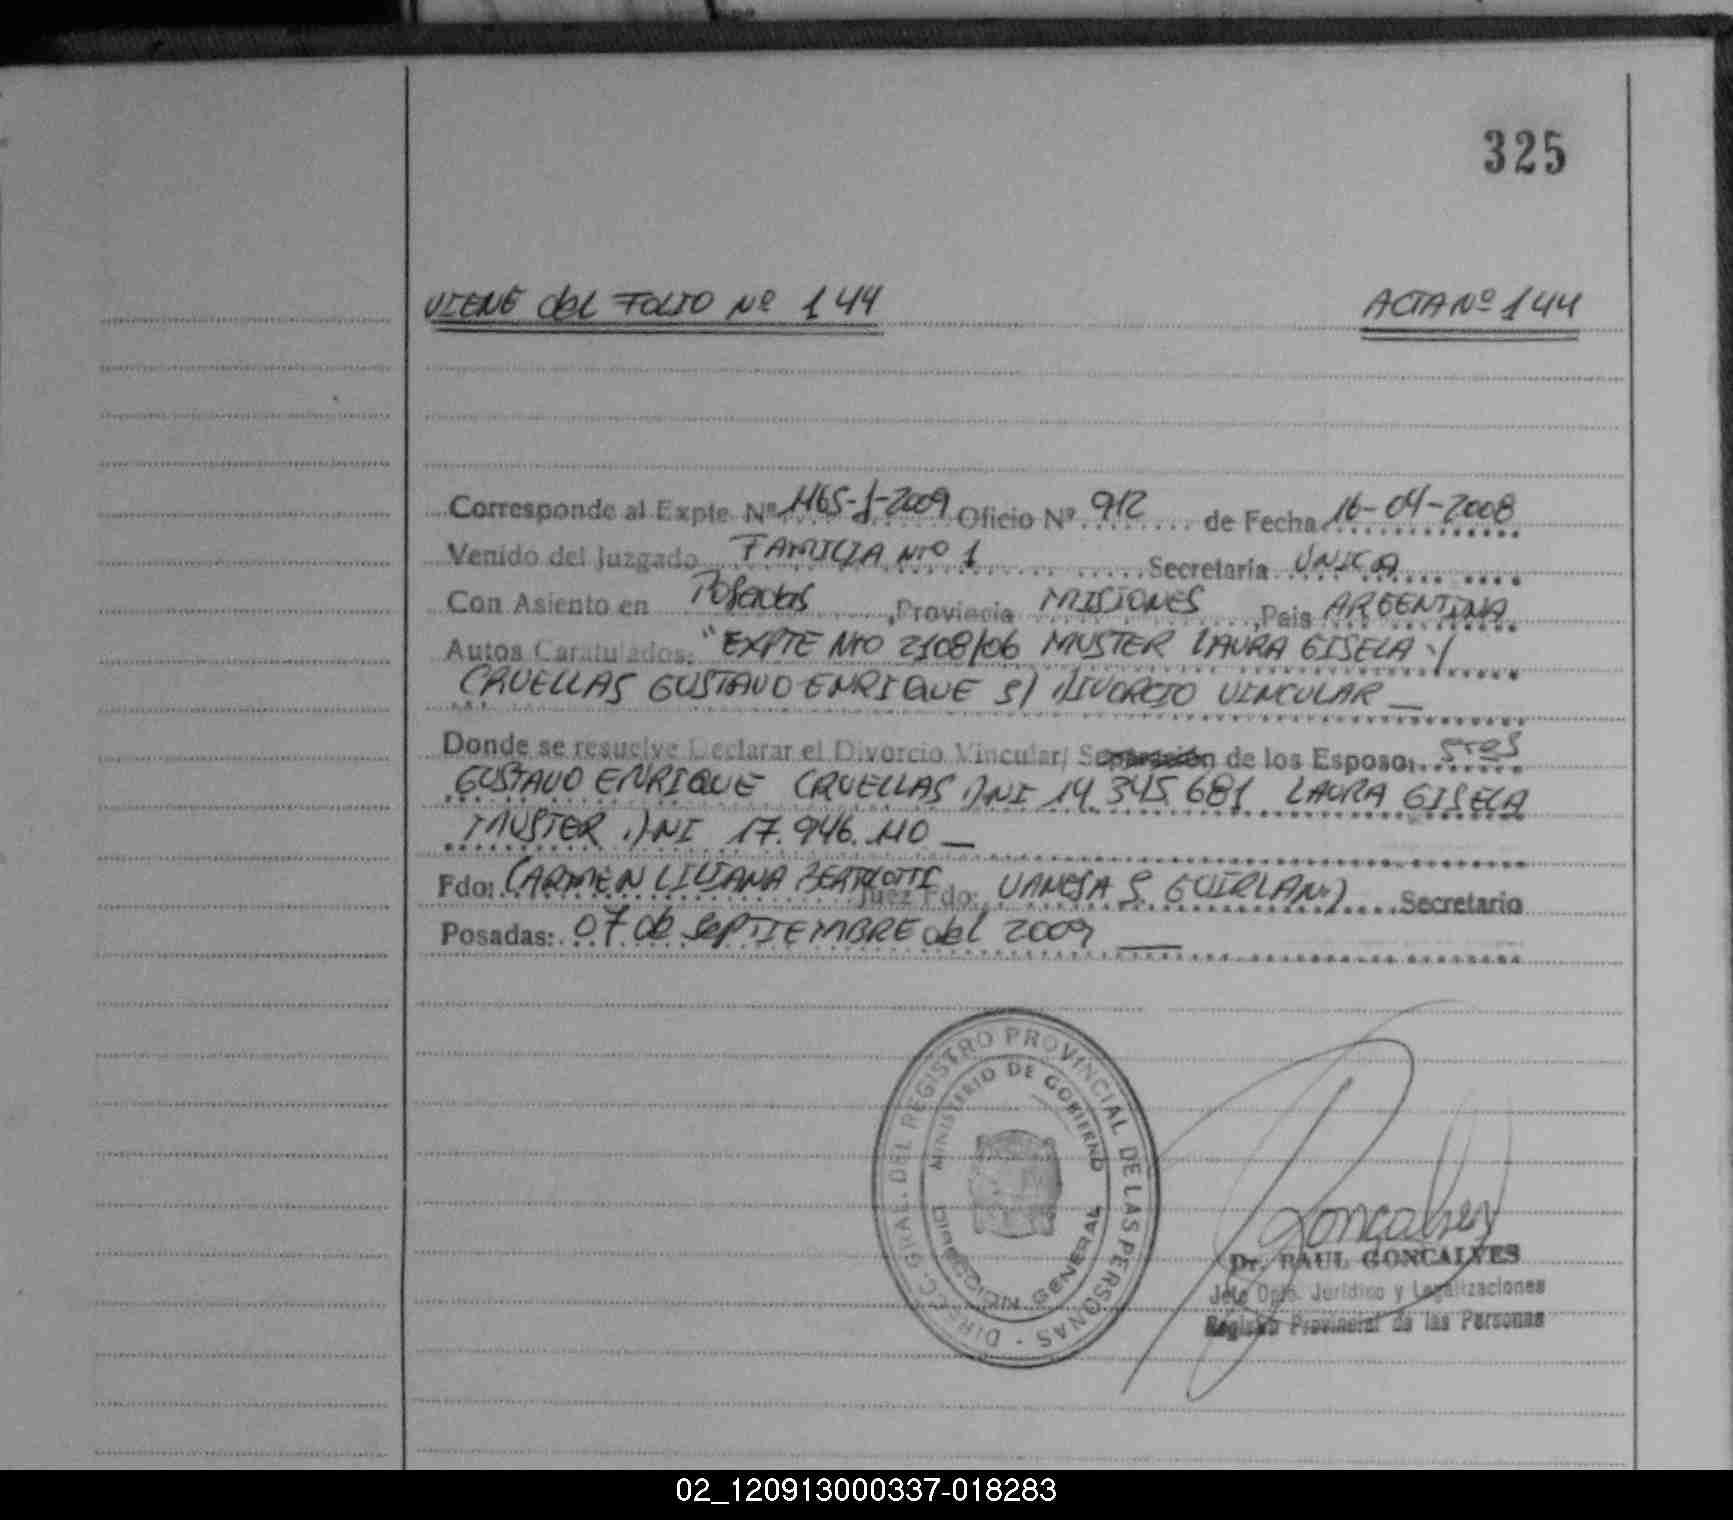 325
VIENE del FOLIO Nº 144 ACTA Nº 144
Corresponde al Expte. Nº 1165-J-2009 Oficio Nº 912 de Fecha 16-04-2008
Venido del Juzgado FAMILIA Nro 1 Secretaria UNICA
Con Asiento en Posadas, Provincia MISIONES, Pais ARGENTINA
Autos Caratulados: "EXPTE Nro 2108/06 MUSTER LAURA GISELA Y/
CRUELLAS GUSTAVO ENRIQUE S/ DIVORCIO VINCULAR
Donde se resuelve Declarar el Divorcio Vincular/ Separación de los Esposos, sres
GUSTAVO ENRIQUE CRUELLAS DNI 14.345.681 LAURA GISELA
MUSTER DNI 17.946.110
Fdo: CARMEN LILIANA Juez Fdo: VANESA S. Secretario
Posadas: 07 de SEPTIEMBRE del 2009
DIRECC. GRAL. DEL REGISTRO PROVINCIAL DE LAS PERSONAS
MINISTERIO DE GOBIERNO
DIRECCION GENERAL
Goncalves
Dr. RAUL GONCALVES
Jefe Dpto. Jurídico y Legalizaciones
Registro Provincial de las Personas
02_120913000337-018283